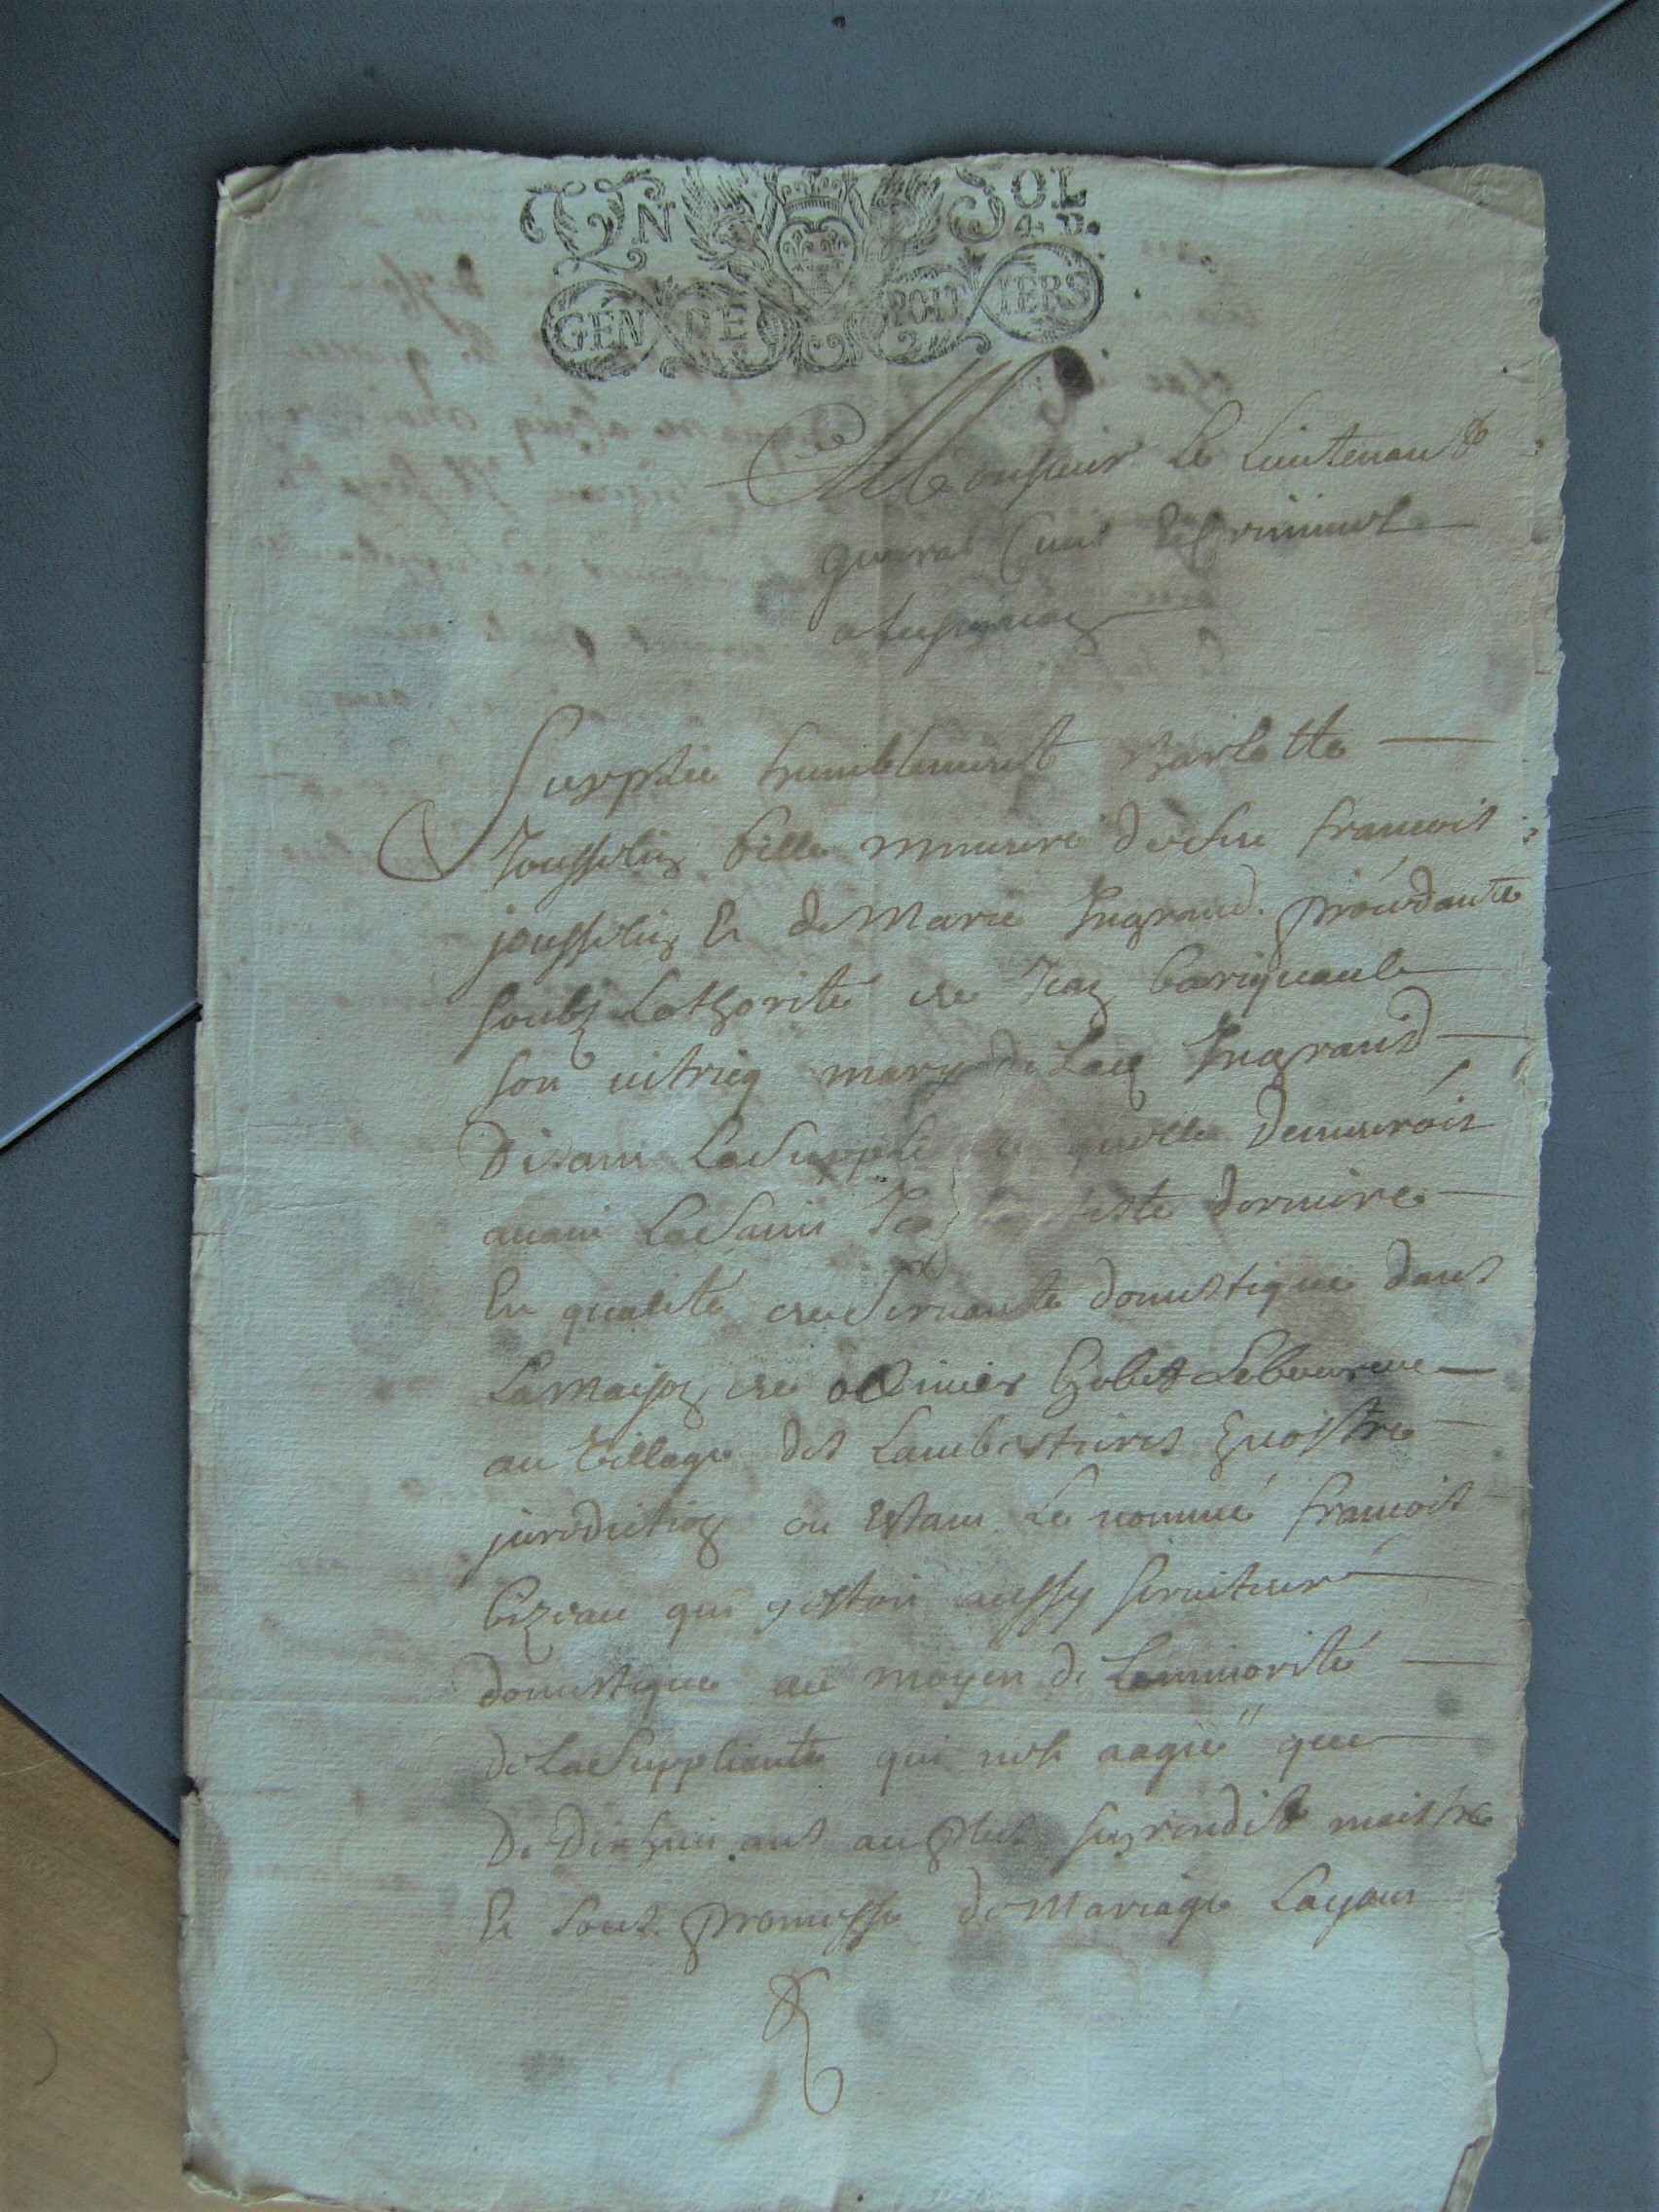 UN SOL
4. D.
GEN DE POITIERS
A Monsieur le Lieutenant
general Civil et Criminel
a Lusignan
Supplie humblement
Jousselin fille mineure de feu francois
jousselin Et de Marie Ingrand procedante
soubz Lothorité de Jean barignault
son vitricq mary de Lad Ingrand
Disant La Supple quelle demeuroit
avant La Saint Jean dernire
En qualité de Servante domestique dans
La maison de ollivier
au Village des Lambertieres En vostre
juridiction ou Estant Le nommé francois
bizeau qui y estoit aussy serviteur
domestique au moyen de La minorité
de La Suppliante qui nest aagée que
De Dix huit ans au plus sen rendit maistre
Et soubz promesse de Mariage Layant